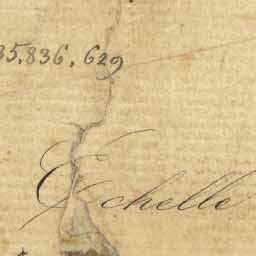 35,836,629
Echelle